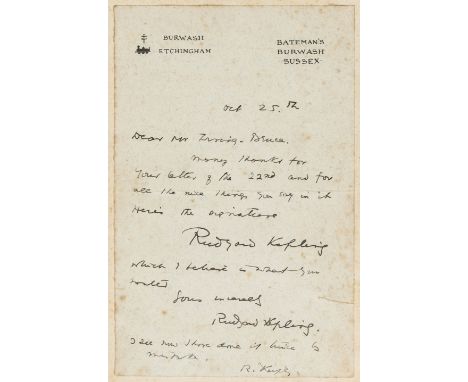 BURWASH
ETCHINGHAM
BATEMAN'S
BURWASH
SUSSEX
Oct 25.th
Dear Mr Irving-Bruce.
Many thanks for
your letter of the 22nd and for
all the nice things you say in it
Here's the signature
Rudyard Kipling
which I believe is what you
wanted
Yours sincerely
Rudyard Kipling.
I see now I have done it twice by
mistake.
R. Kipling.